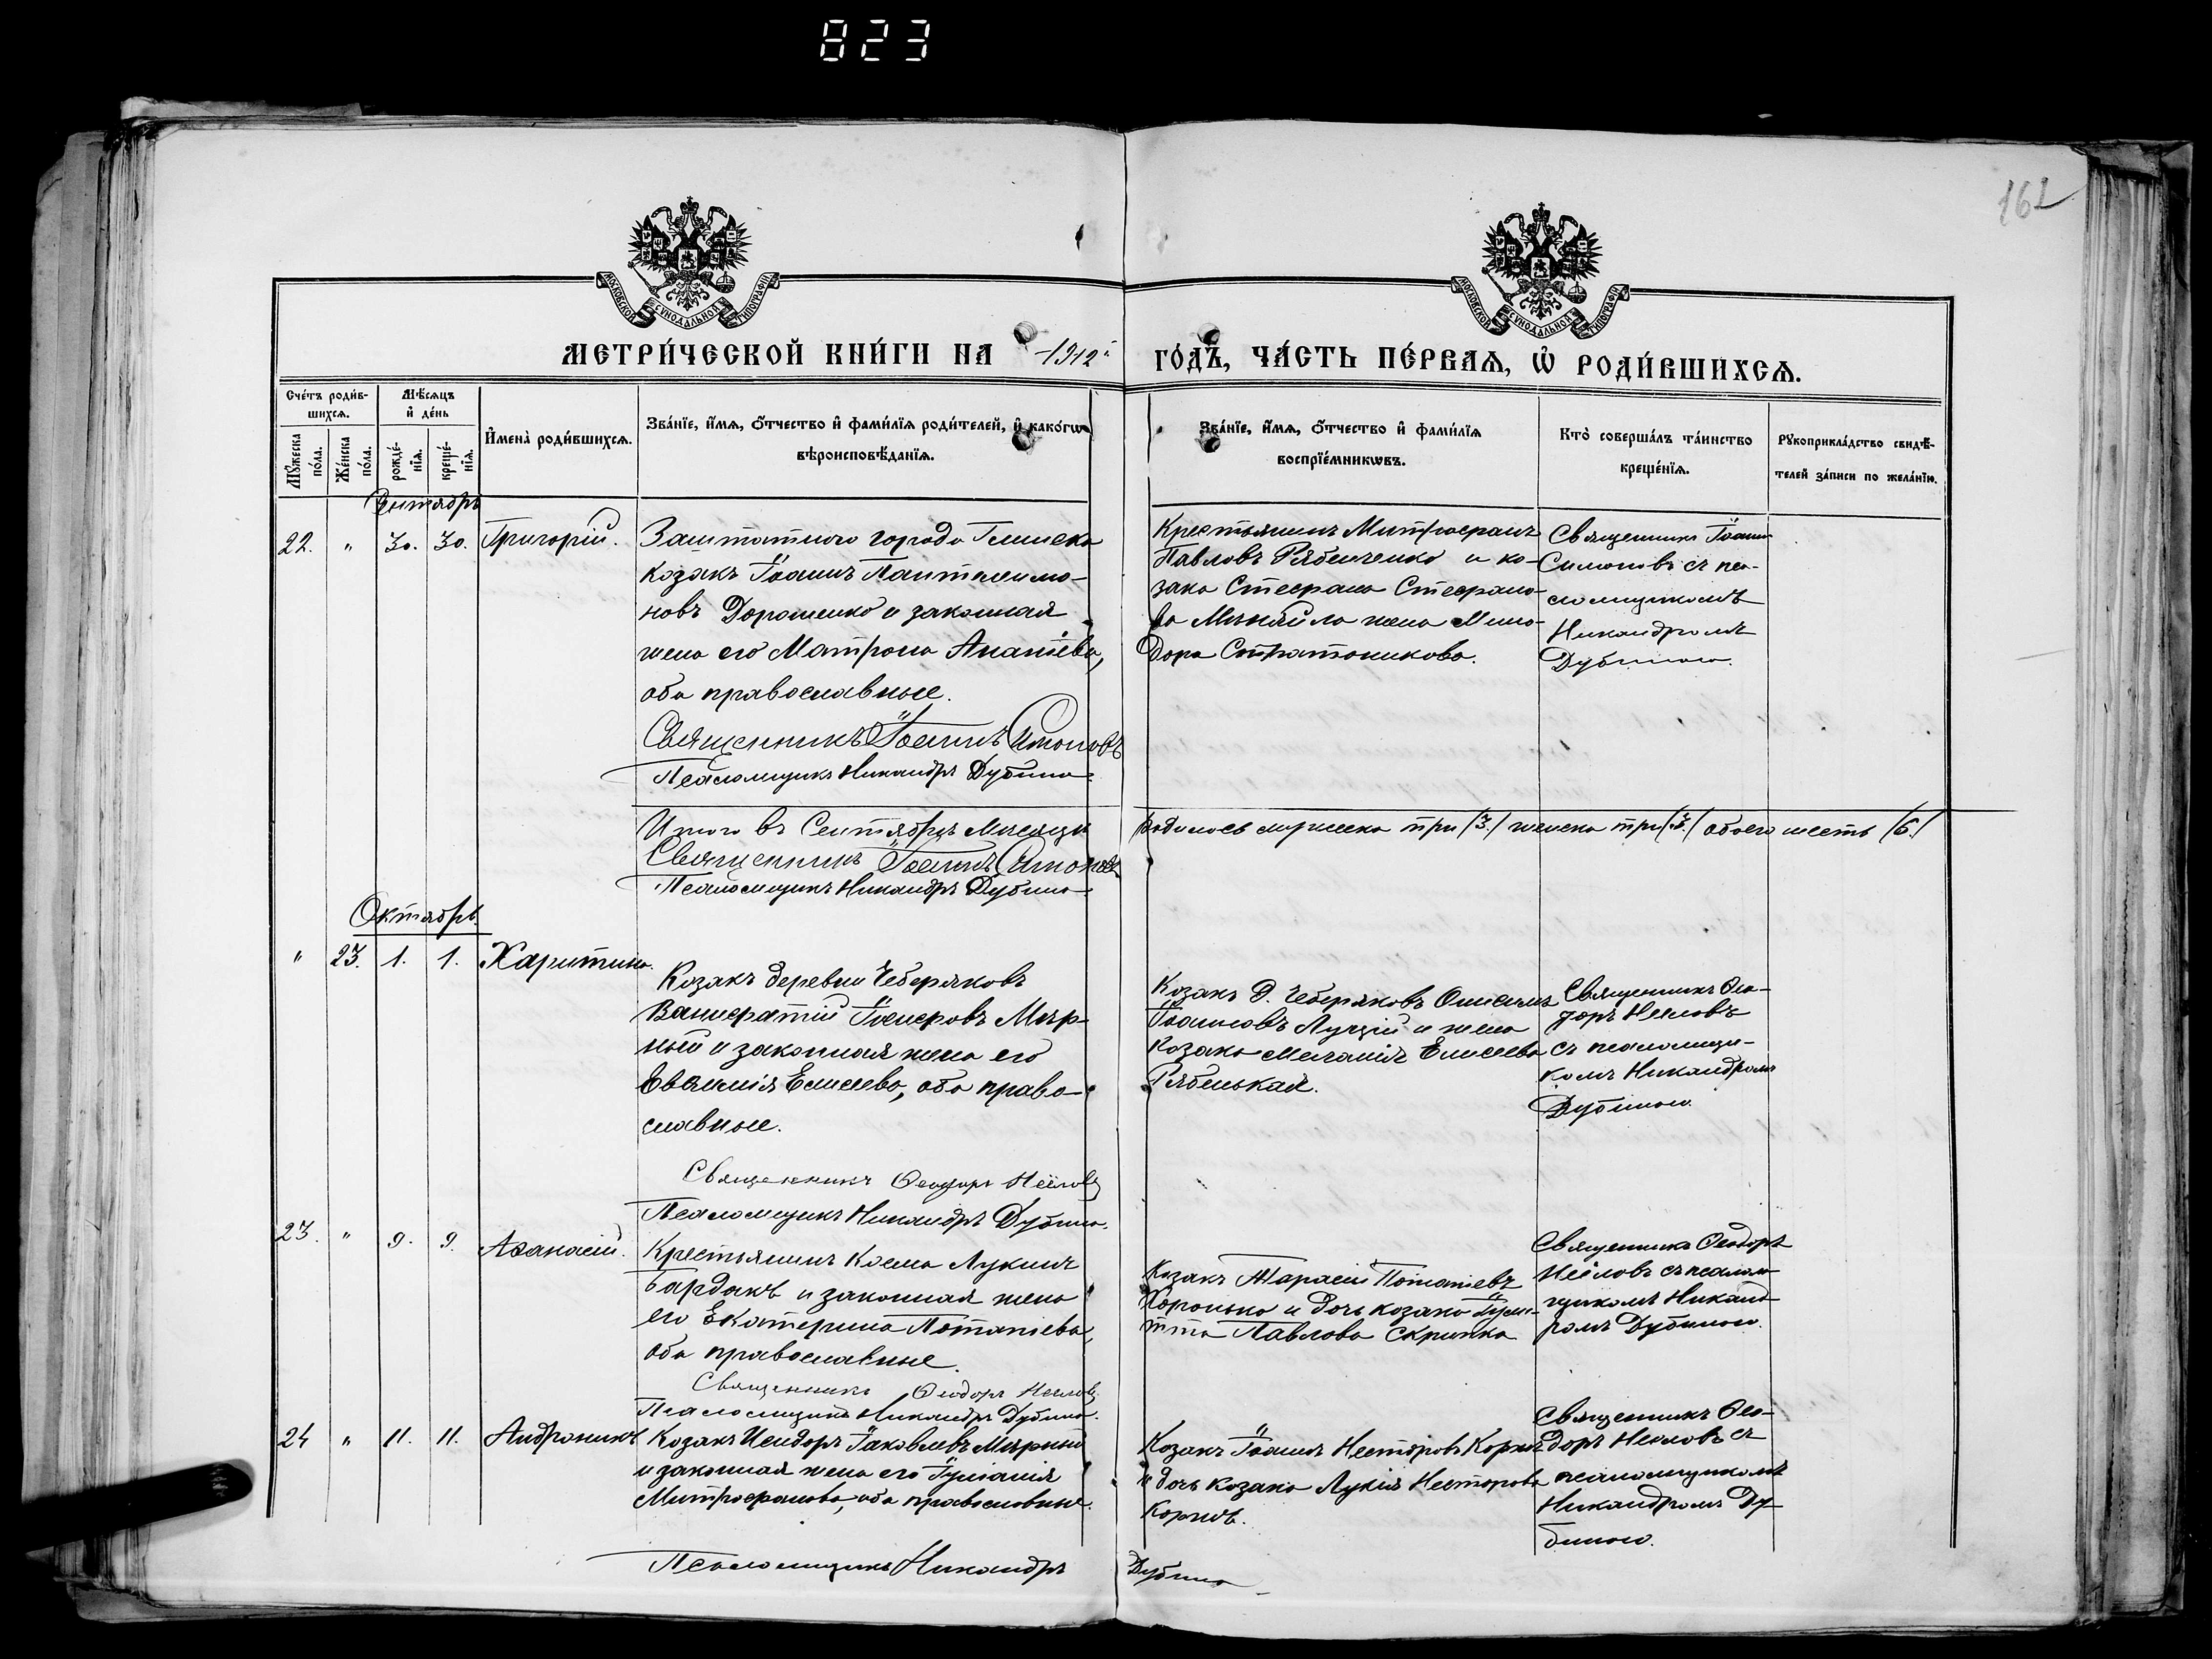 823
162
МОСКОВСКОЙ СѴНОДАЛЬНОЙ ТИПОГРАФІИ
МОСКОВСКОЙ СѴНОДАЛЬНОЙ ТИПОГРАФІИ
МЕТРИ́ЧЕСКОЙ КНИ́ГИ НА 1912 й ГО́ДЪ, ЧА́СТЬ ПЕ́РВАЯ, Ѡ҆ РОДИ́ВШИХСЯ.
Сче́тъ роди́в-
шихся.
Мѣ́сяцъ
и҆ де́нь
Мꙋ́жеска по́ла.
Же́нска по́ла.
рожде́-нїя.
креще́-нїя.
И҆мена̀ роди́вшихся.
Зва́нїе, и҆́мя, ѻ҆́тчество и҆ фами́лїя роди́телей, и҆ како́гѡ
вѣроисповѣ́данїя.
Зва́нїе, и҆́мя, ѻ҆́тчество и҆ фами́лїя
воспрїе́мникѡвъ.
Кто̀ соверша́лъ та́инство
креще́нїя.
Рꙋкоприкла́дство свидѣ́-
телей за́писи по жела́нїю.
Сентябрь
22. " 30. 30. Григорій.
Заштатного города Глинска
козакъ Іоаннъ Пантелеимо-
новъ Дорошенко и законная
жена его Матрона Ананіева,
оба православные.
Священникъ Іоаннъ Симоновъ
Псаломщикъ Никандръ Дубина
Крестьянинъ Митрофанъ
Павловъ Рябченко и ко-
зака Стефана Стефано-
ва Миняйло жена Мино-
дора Стратоникова.
Священникъ Іоаннъ
Симоновъ съ пса-
ломщикомъ
Никандромъ
Дубиною.
Итого въ Сентябрѣ мѣсяцѣ родилось мужеска три /3./ женска три /3./ обоего шесть /6./
Священникъ Іоаннъ Симоновъ
Псаломщикъ Никандръ Дубина
Октябрь.
" 23. 1. 1. Харитина.
Козакъ деревни Чеберяковъ
Ванифатій Іосифовъ Мир-
ный и законная жена его
Евфимія Елисеева, оба право-
славные.
Священникъ Ѳеодоръ Неѣловъ
Псаломщикъ Никандръ Дубина.
Козакъ д. Чеберяковъ Онисимъ
Іоанновъ Луцій и жена
козака Меланія Елисеева
Рябенькая.
Священникъ Ѳео-
доръ Неѣловъ
съ псаломщи-
комъ Никандромъ
Дубиною.
23. " 9. 9. Аѳанасій.
Крестьянинъ Косма Лукинъ
Бардакъ и законная жена
его Екатерина Потапіева,
оба православные.
Священникъ Ѳеодоръ Неѣловъ
Псаломщикъ Никандръ Дубина.
Козакъ Тарасій Потапіевъ
Хоронько и дочь козака Іули-
тта Павлова Скрипка
Священникъ Ѳеодоръ
Неѣловъ съ псалом-
щикомъ Никанд-
ромъ Дубиною.
24 " 11. 11. Андроникъ
Козакъ Исидоръ Іаковлевъ Мирный
и законная жена его Іуліанія
Митрофанова, оба православные.
Псаломщикъ Никандръ Дубина
Козакъ Іоаннъ Несторовъ Коржъ
и дочь козака Лукія Несторова
Коржъ.
Священникъ Ѳео-
доръ Неѣловъ съ
псаломщикомъ
Никандромъ Ду-
биною.